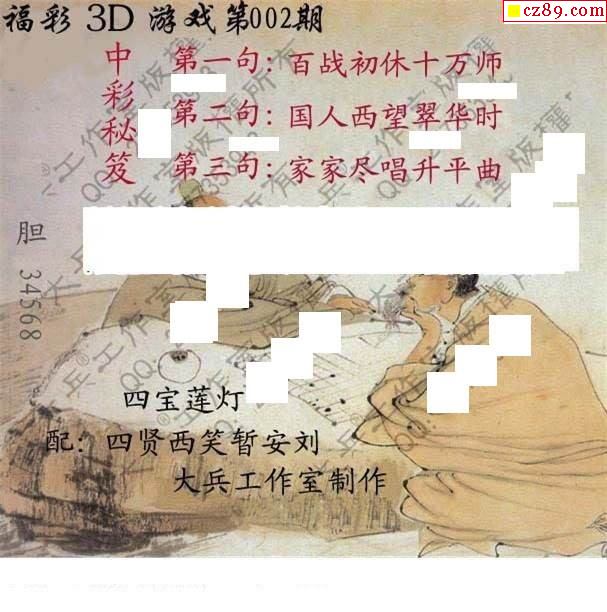 福彩 3D 游戏第002期
cz89.com
中彩秘笈
第一句：百战初休十万师
第二句：国人西望翠华时
第三句：家家尽唱升平曲
胆 34568
四宝莲灯
配：四贤西笑暂安刘
大兵工作室制作